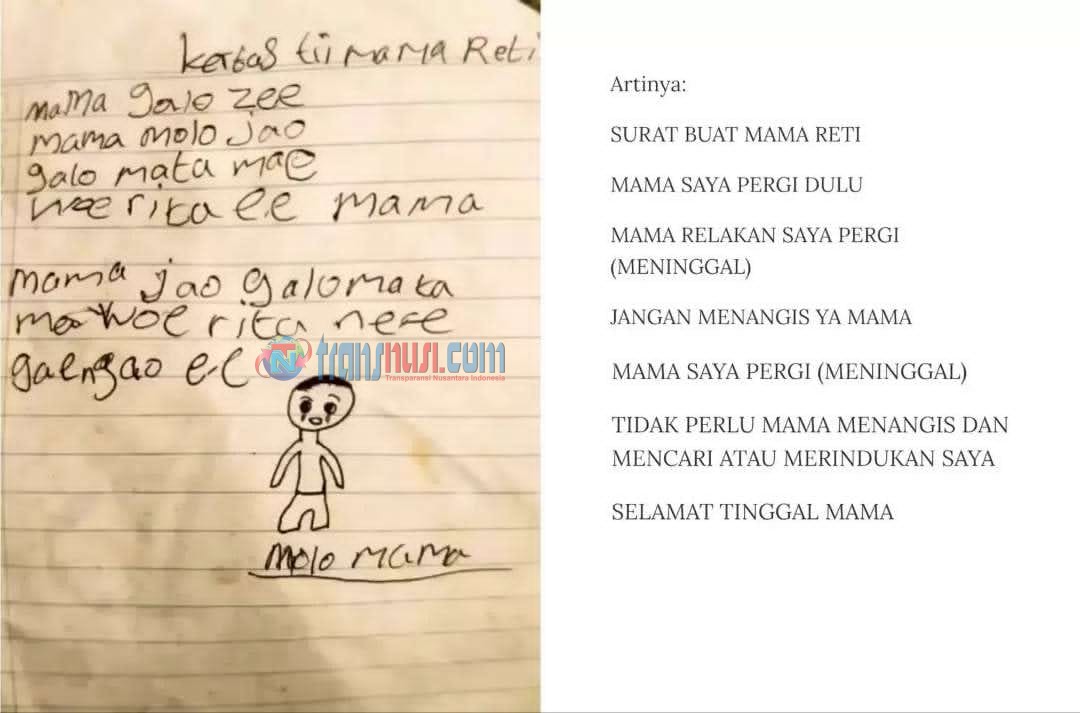 kertas tii mama Reti
mama galo zee
mama molo jao
galo mata mae
woe rita ee mama
mama jao galo mata
mae woe rita ne'e
gae ngao ee
transnusi.com
Transparansi Nusantara Indonesia
molo mama
Artinya:
SURAT BUAT MAMA RETI
MAMA SAYA PERGI DULU
MAMA RELAKAN SAYA PERGI
(MENINGGAL)
JANGAN MENANGIS YA MAMA
MAMA SAYA PERGI (MENINGGAL)
TIDAK PERLU MAMA MENANGIS DAN
MENCARI ATAU MERINDUKAN SAYA
SELAMAT TINGGAL MAMA